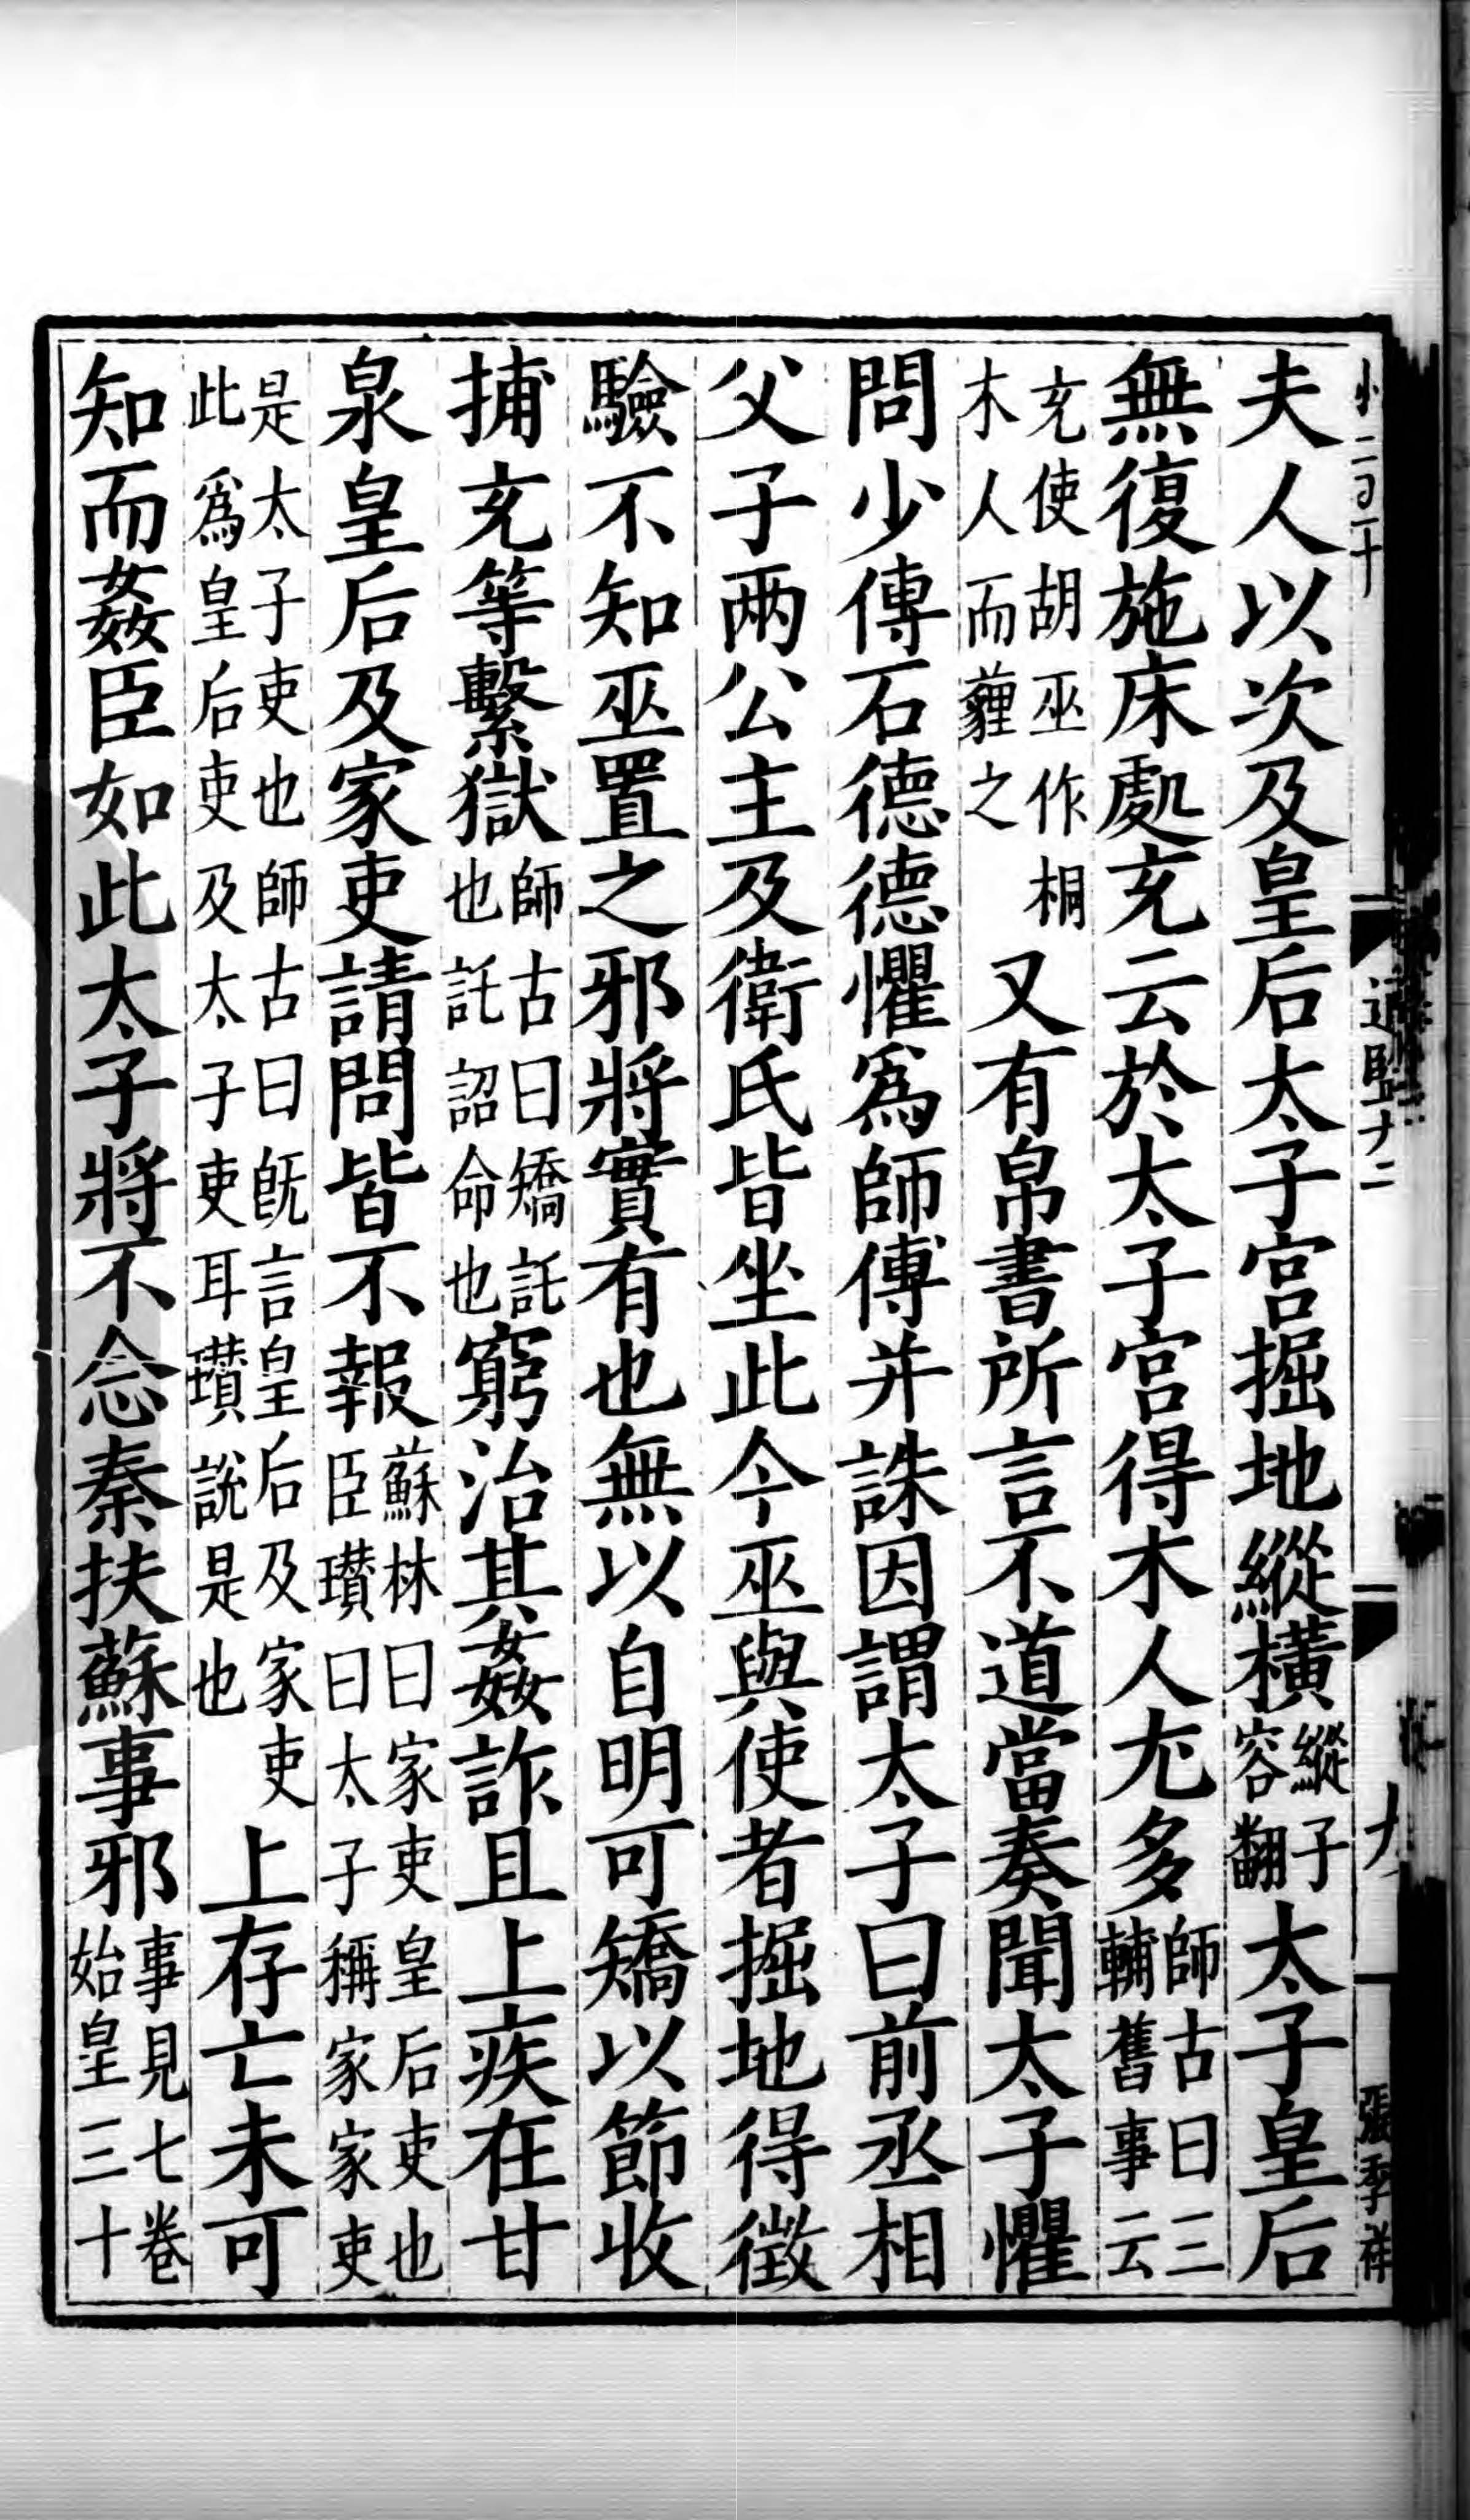 夫人以次及皇后太子宮掘地縱橫縱子容翻太子皇后
無復施床處充云於太子宮得木人尤多師古曰三輔舊事云
充使胡巫作桐木人而薶之又有帛書所言不道當奏聞太子懼
問少傅石德德懼爲師傅并誅因謂太子曰前丞相
父子兩公主及衛氏皆坐此今巫與使者掘地得徵
驗不知巫置之邪將實有也無以自明可矯以節收
捕充等繫獄師古曰矯託也託詔命也窮治其姦詐且上疾在甘
泉皇后及家吏請問皆不報蘇林曰家吏皇后吏也臣瓚曰太子稱家家吏
是太子吏也師古曰旣言皇后及家吏此爲皇后吏及太子吏耳瓚說是也上存亡未可
知而姦臣如此太子將不念秦扶蘇事邪事見七卷始皇三十
張季祥